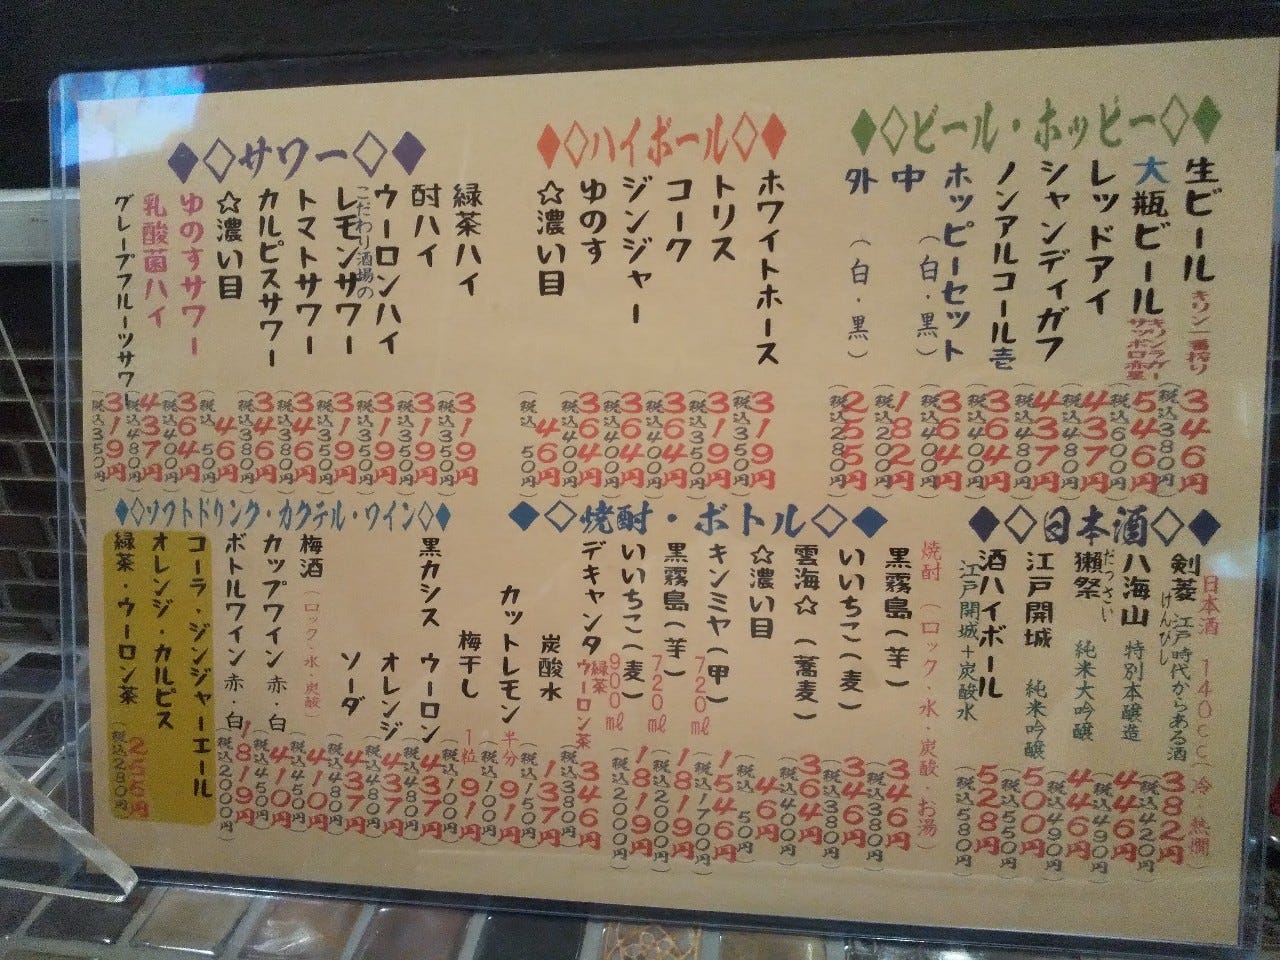 ◆◇ビール・ホッピー◇◆
生ビール キリン一番搾り 346円 (税込380円)
大瓶ビール キリンラガー サッポロ赤星 546円 (税込600円)
レッドアイ 437円 (税込480円)
シャンディガフ 437円 (税込480円)
ノンアルコール壱 364円 (税込400円)
ホッピーセット (白・黒) 364円 (税込400円)
中 182円 (税込200円)
外 (白・黒) 255円 (税込280円)
◆◇ハイボール◇◆
ホワイトホース 319円 (税込350円)
トリス 319円 (税込350円)
コーク 364円 (税込400円)
ジンジャー 364円 (税込400円)
ゆのす 364円 (税込400円)
☆濃い目 46円 (税込50円)
◆◇サワー◇◆
緑茶ハイ 319円 (税込350円)
酎ハイ 319円 (税込350円)
ウーロンハイ 319円 (税込350円)
こだわり酒場の
レモンサワー 319円 (税込350円)
トマトサワー 346円 (税込380円)
カルピスサワー 346円 (税込380円)
☆濃い目 46円 (税込50円)
ゆのすサワー 364円 (税込400円)
乳酸菌ハイ 437円 (税込480円)
グレープフルーツサワー 319円 (税込350円)
◆◇日本酒◇◆
日本酒 140cc(冷・熱燗)
剣菱 けんびし 江戸時代からある酒 382円 (税込420円)
八海山 特別本醸造 446円 (税込490円)
獺祭 だっさい 純米大吟醸 446円 (税込490円)
江戸開城 純米吟醸 500円 (税込550円)
酒ハイボール 江戸開城+炭酸水 528円 (税込580円)
◆◇焼酎・ボトル◇◆
焼酎 (ロック・水・炭酸・お湯)
黒霧島(芋) 346円 (税込380円)
いいちこ(麦) 346円 (税込380円)
雲海☆(蕎麦) 364円 (税込400円)
☆濃い目 46円 (税込50円)
キンミヤ(甲) 720㎖ 1546円 (税込1700円)
黒霧島(芋) 720㎖ 1819円 (税込2000円)
いいちこ(麦) 900㎖ 1819円 (税込2000円)
デキャンタ 緑茶 ウーロン茶 346円 (税込380円)
炭酸水 137円 (税込150円)
カットレモン 半分 91円 (税込100円)
梅干し 1粒 91円 (税込100円)
◆◇ソフトドリンク・カクテル・ワイン◇◆
黒カシス ウーロン 437円 (税込480円)
オレンジ 437円 (税込480円)
ソーダ 437円 (税込480円)
梅酒 (ロック・水・炭酸) 410円 (税込450円)
カップワイン 赤・白 410円 (税込450円)
ボトルワイン 赤・白 1819円 (税込2000円)
コーラ・ジンジャーエール
オレンジ・カルピス
緑茶・ウーロン茶 255円 (税込280円)